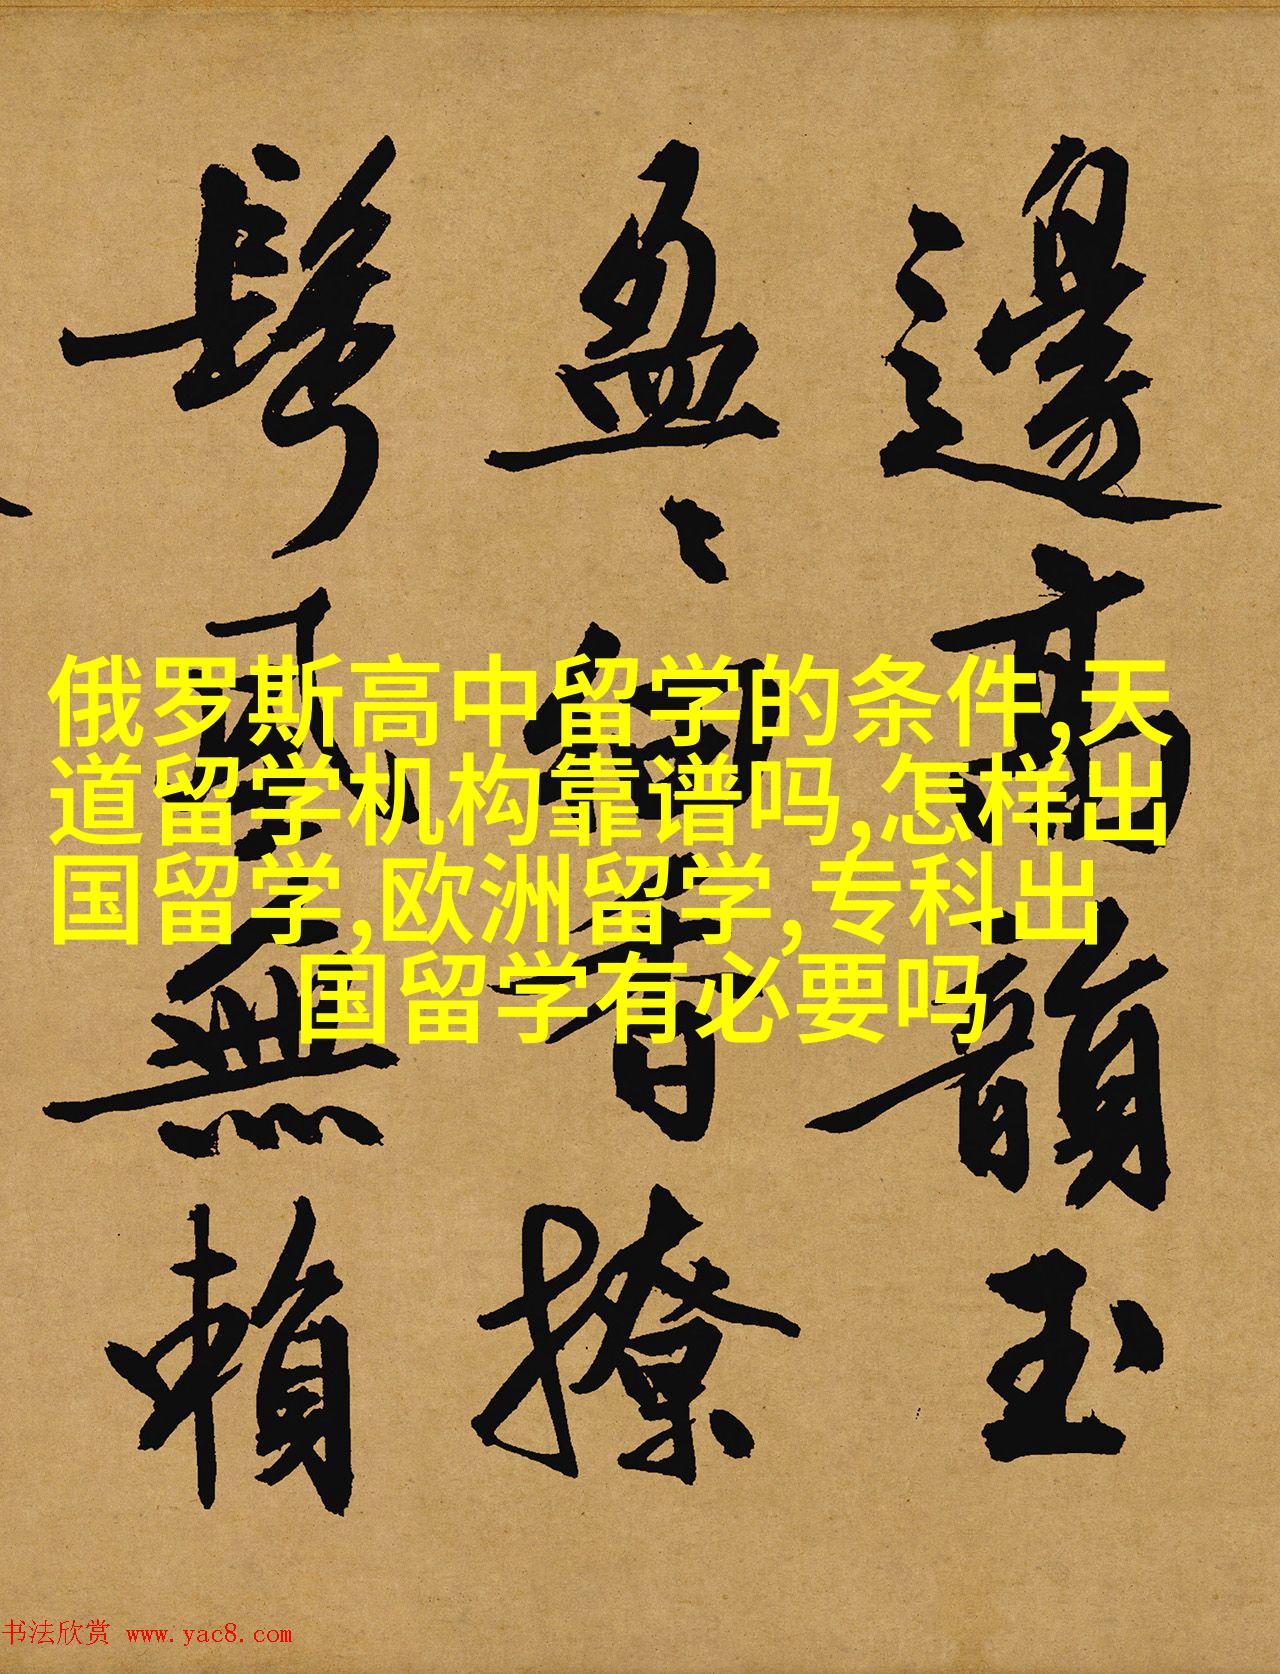 邊高韻玉
盈〻香撩
鬢風無賴
俄罗斯高中留学的条件,天
道留学机构靠谱吗,怎样出
国留学,欧洲留学,专科出
国留学有必要吗
书法欣赏 www.yac8.com